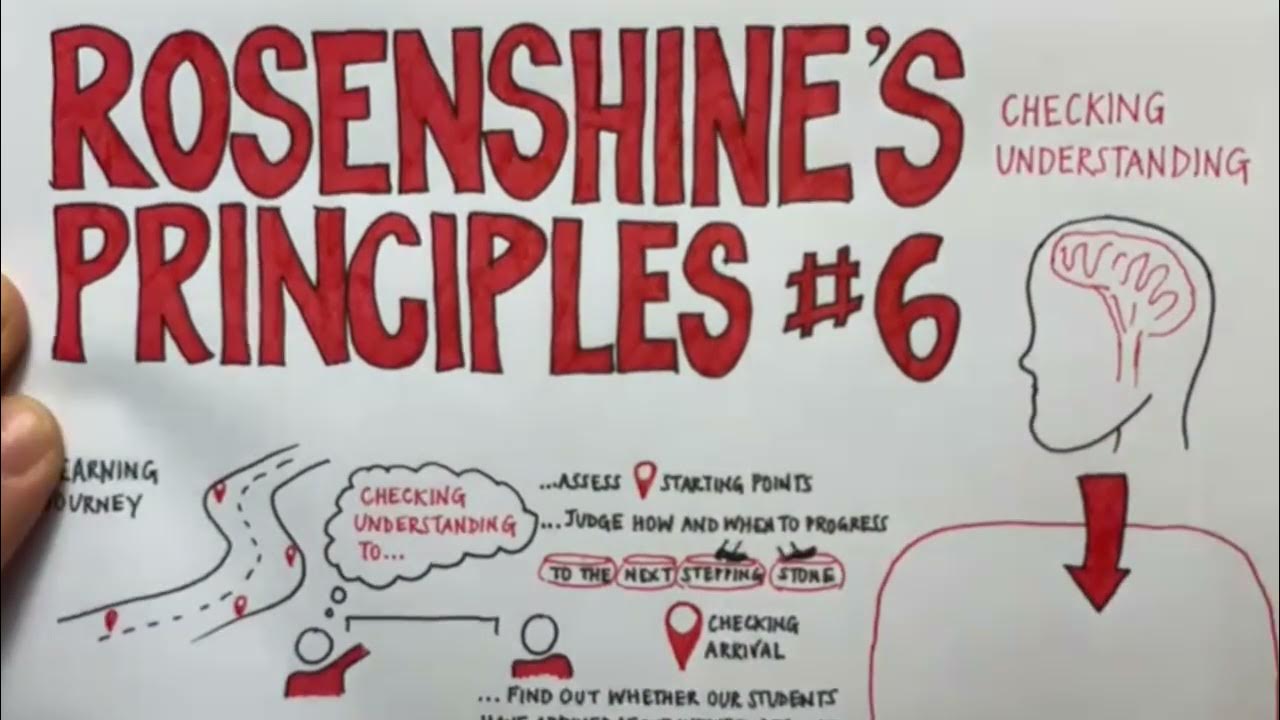 ROSENSHINE'S
PRINCIPLES #6
CHECKING
UNDERSTANDING
EARNING
OURNEY
CHECKING
UNDERSTANDING
TO...
...ASSESS STARTING POINTS
...JUDGE HOW AND WHEN TO PROGRESS
TO THE NEXT STEPPING STONE
CHECKING
ARRIVAL
... FIND OUT WHETHER OUR STUDENTS